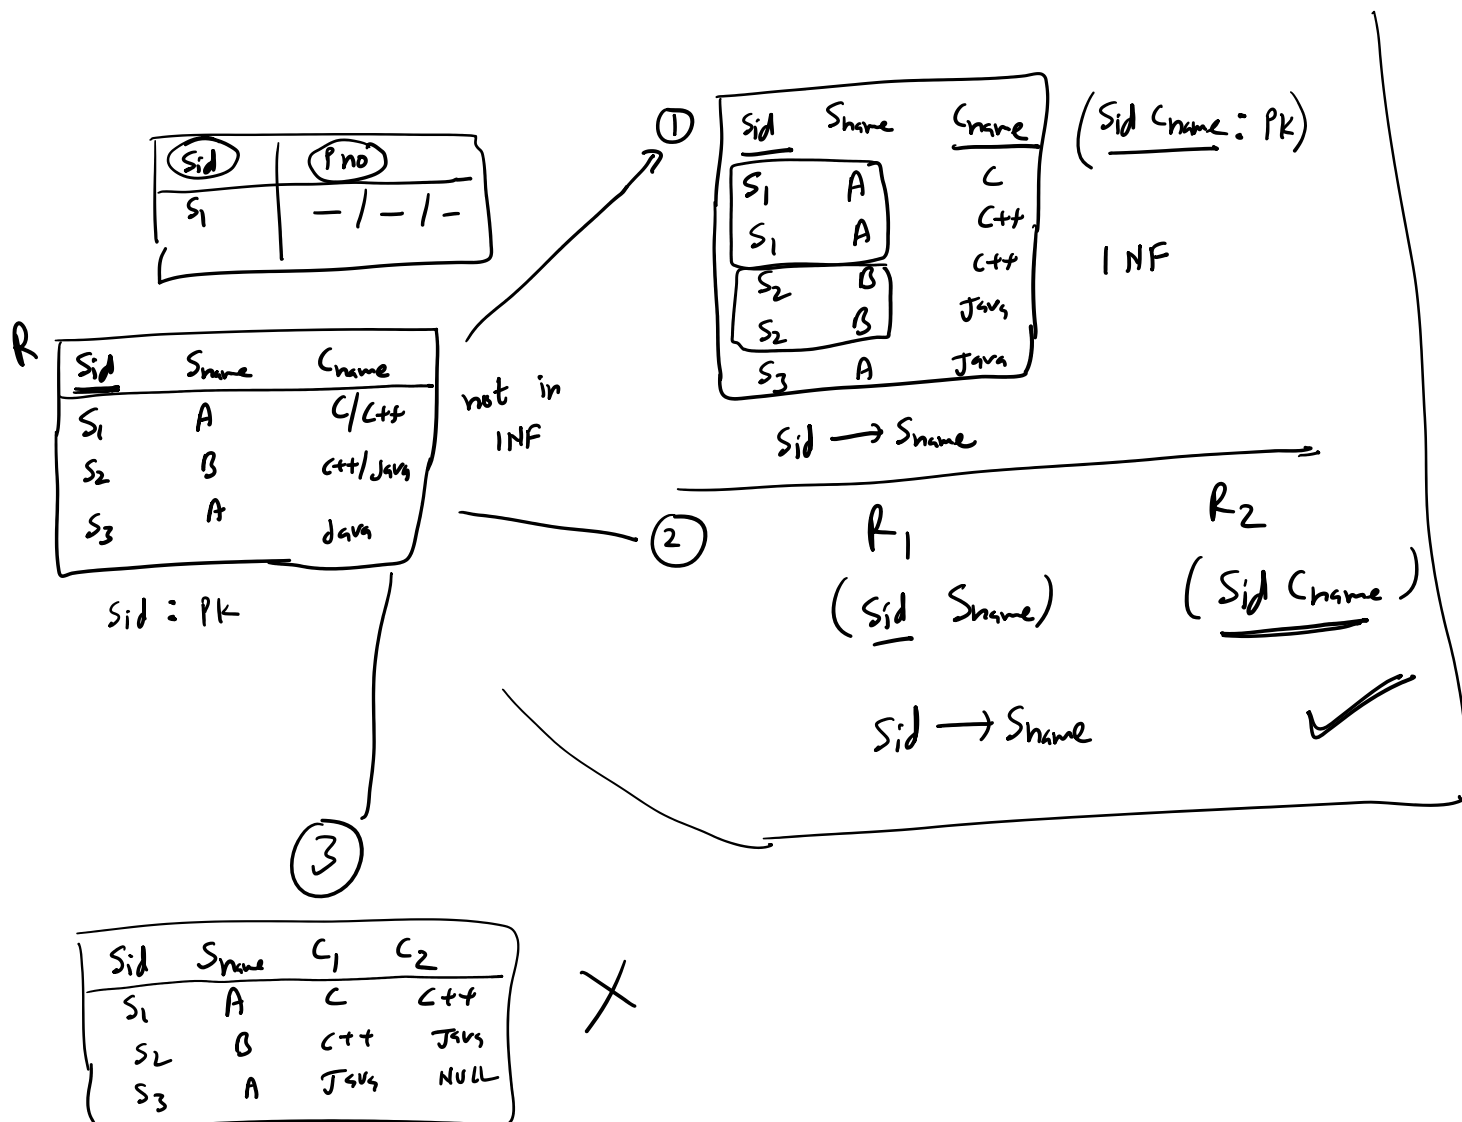 Sid Pno
S1 — / — / —
R
Sid Sname Cname
S1 A C/C++
S2 B C++/Java
S3 A Java
Sid : PK
not in
1NF
①
Sid Sname Cname
S1 A C
S1 A C++
S2 B C++
S2 B Java
S3 A Java
(Sid Cname : PK)
1NF
Sid → Sname
②
R1 R2
(Sid Sname) (Sid Cname)
Sid → Sname ✓
③
Sid Sname C1 C2
S1 A C C++
S2 B C++ Java
S3 A Java NULL
X